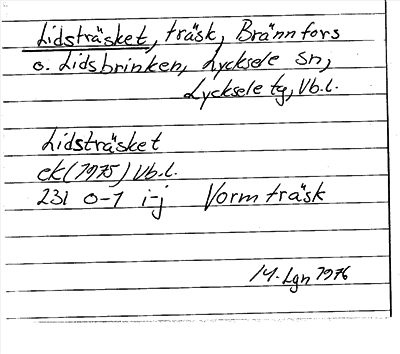 Lidsträsket, träsk, Brännfors
o. Lidsbrinken, Lycksele sn,
Lycksele tg, Vb.l.
Lidsträsket
ek (1975) Vb.l.
231 0-1 i-j Vormträsk
14. Lgn 1976